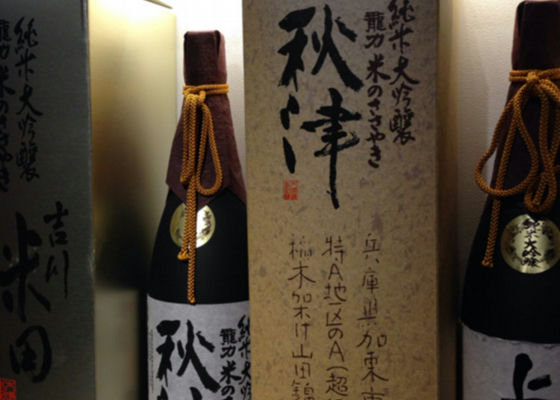 純米大吟醸
龍力 米のささやき
秋津
兵庫県加東市
特A地区のA(超
稲木架け山田錦
純米大吟醸
龍力 米のささやき
吉川
米田
純米大
龍力 米のささ
秋津
純米大吟醸
上